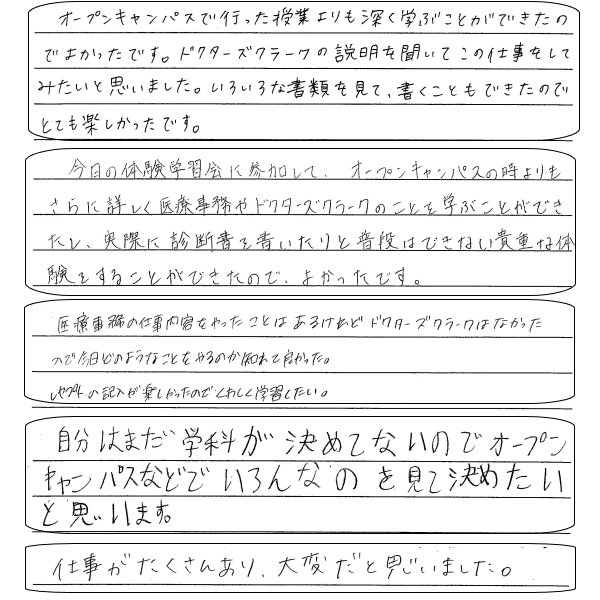 オープンキャンパスで行った授業よりも深く学ぶことができたの
でよかったです。ドクターズクラークの説明を聞いてこの仕事をして
みたいと思いました。いろいろな書類を見て、書くこともできたので
とても楽しかったです。
今日の体験学習会に参加して、オープンキャンパスの時よりも
さらに詳しく医療事務やドクターズクラークのことを学ぶことができ
たし、実際に診断書を書いたりと普段はできない貴重な体
験をすることができたので、よかったです。
医療事務の仕事内容をやったことはあるけれどドクターズクラークはなかった
ので今日どのようなことをやるのか知れて良かった。
レセプトの記入が楽しかったのでくわしく学習したい。
自分はまだ学科が決めてないのでオープン
キャンパスなどでいろんなのを見て決めたい
と思います。
仕事がたくさんあり、大変だと思いました。